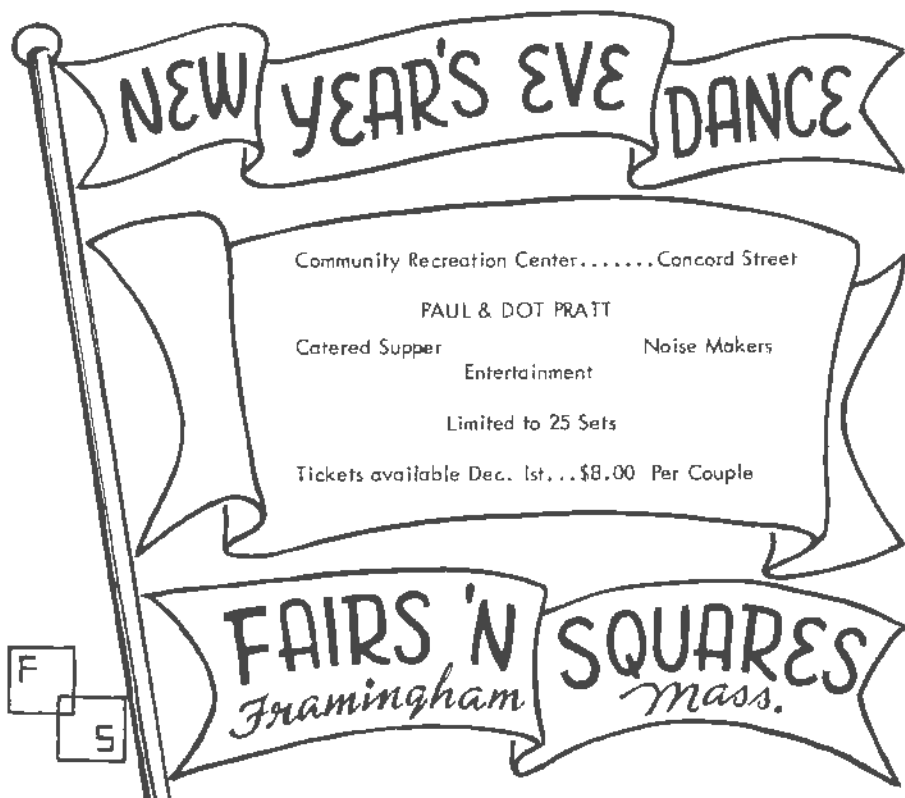 NEW YEAR'S EVE DANCE
Community Recreation Center.......Concord Street
PAUL & DOT PRATT
Catered Supper Noise Makers
Entertainment
Limited to 25 Sets
Tickets available Dec. 1st...$8.00 Per Couple
FAIRS 'N SQUARES
Framingham Mass.
F
S